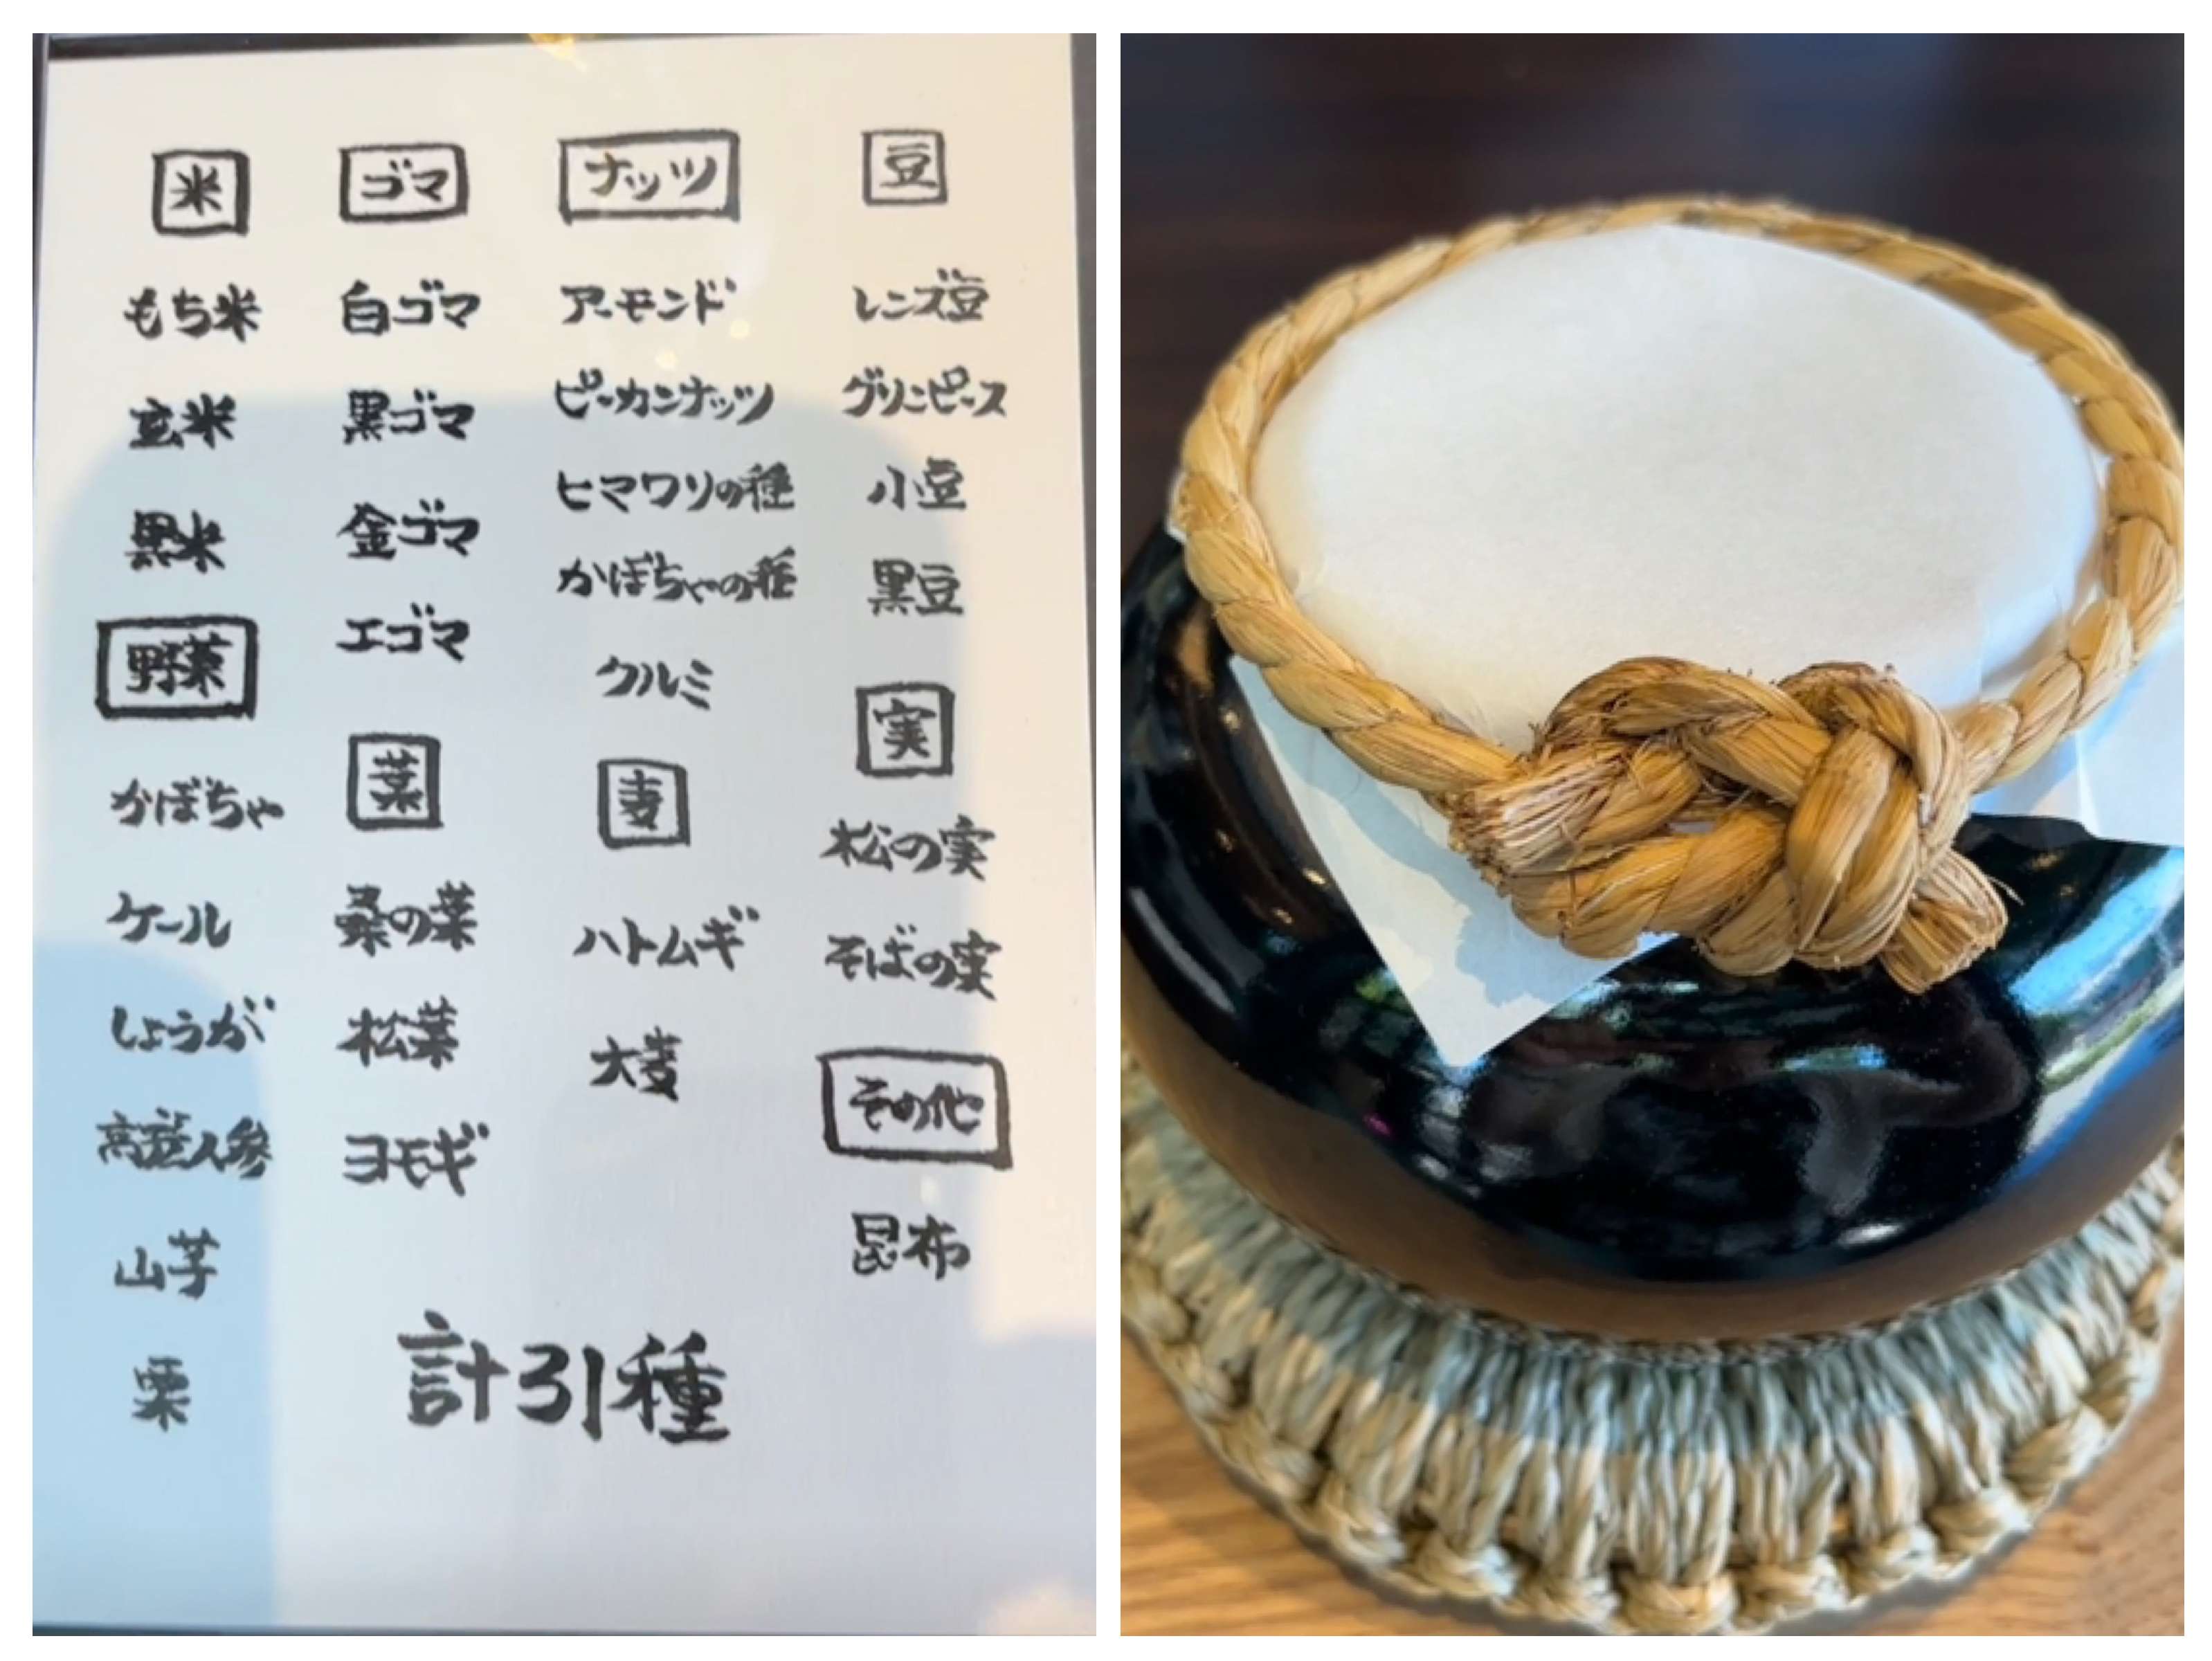 米
もち米
玄米
黒米
野菜
かぼちゃ
ケール
しょうが
高麗人参
山芋
栗
ゴマ
白ゴマ
黒ゴマ
金ゴマ
エゴマ
葉
桑の葉
松葉
ヨモギ
ナッツ
アーモンド
ピーカンナッツ
ヒマワリの種
かぼちゃの種
クルミ
麦
ハトムギ
大麦
豆
レンズ豆
グリンピース
小豆
黒豆
実
松の実
そばの実
その他
昆布
計31種